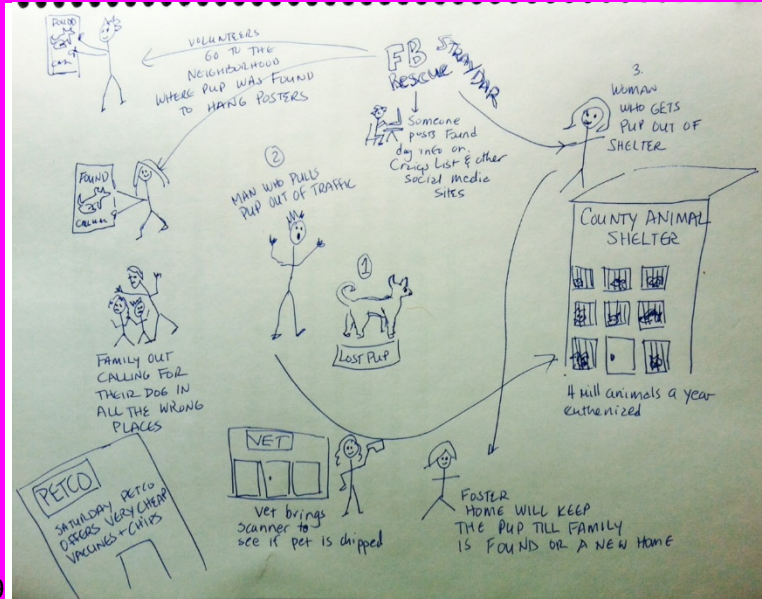 FOUND
VOLUNTEERS
GO TO THE
NEIGHBORHOOD
WHERE PUP WAS FOUND
TO HANG POSTERS
FB
RESCUE
STRAYDAR
Someone
posts found
dog info on
Craigs List & other
social media
sites
3.
WOMAN
WHO GETS
PUP OUT OF
SHELTER
FOUND
2
MAN WHO PULLS
PUP OUT OF TRAFFIC
1
LOST PUP
COUNTY ANIMAL
SHELTER
4 Mill animals a year
euthenized
FAMILY OUT
CALLING FOR
THEIR DOG IN
ALL THE WRONG
PLACES
PETCO
SATURDAY PETCO
OFFERS VERY CHEAP
VACCINES + CHIPS
VET
Vet brings
scanner to
see if pet is chipped
FOSTER
HOME WILL KEEP
THE PUP TILL FAMILY
IS FOUND OR A NEW HOME